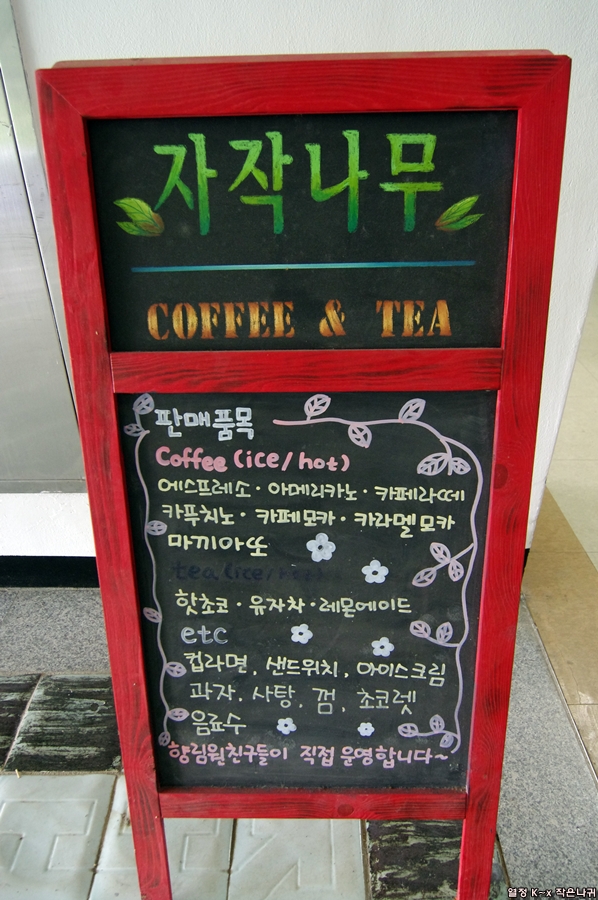 자작나무
COFFEE & TEA
판매품목
Coffee (ice/hot)
에스프레소 · 아메리카노 · 카페라떼
카푸치노 · 카페모카 · 카라멜모카
마끼아또
tea (ice/hot)
핫초코 · 유자차 · 레몬에이드
etc
컵라면, 샌드위치, 아이스크림
과자, 사탕, 껌, 초코렛
음료수
향림원친구들이 직접 운영합니다~
열정 K-x 작은나귀